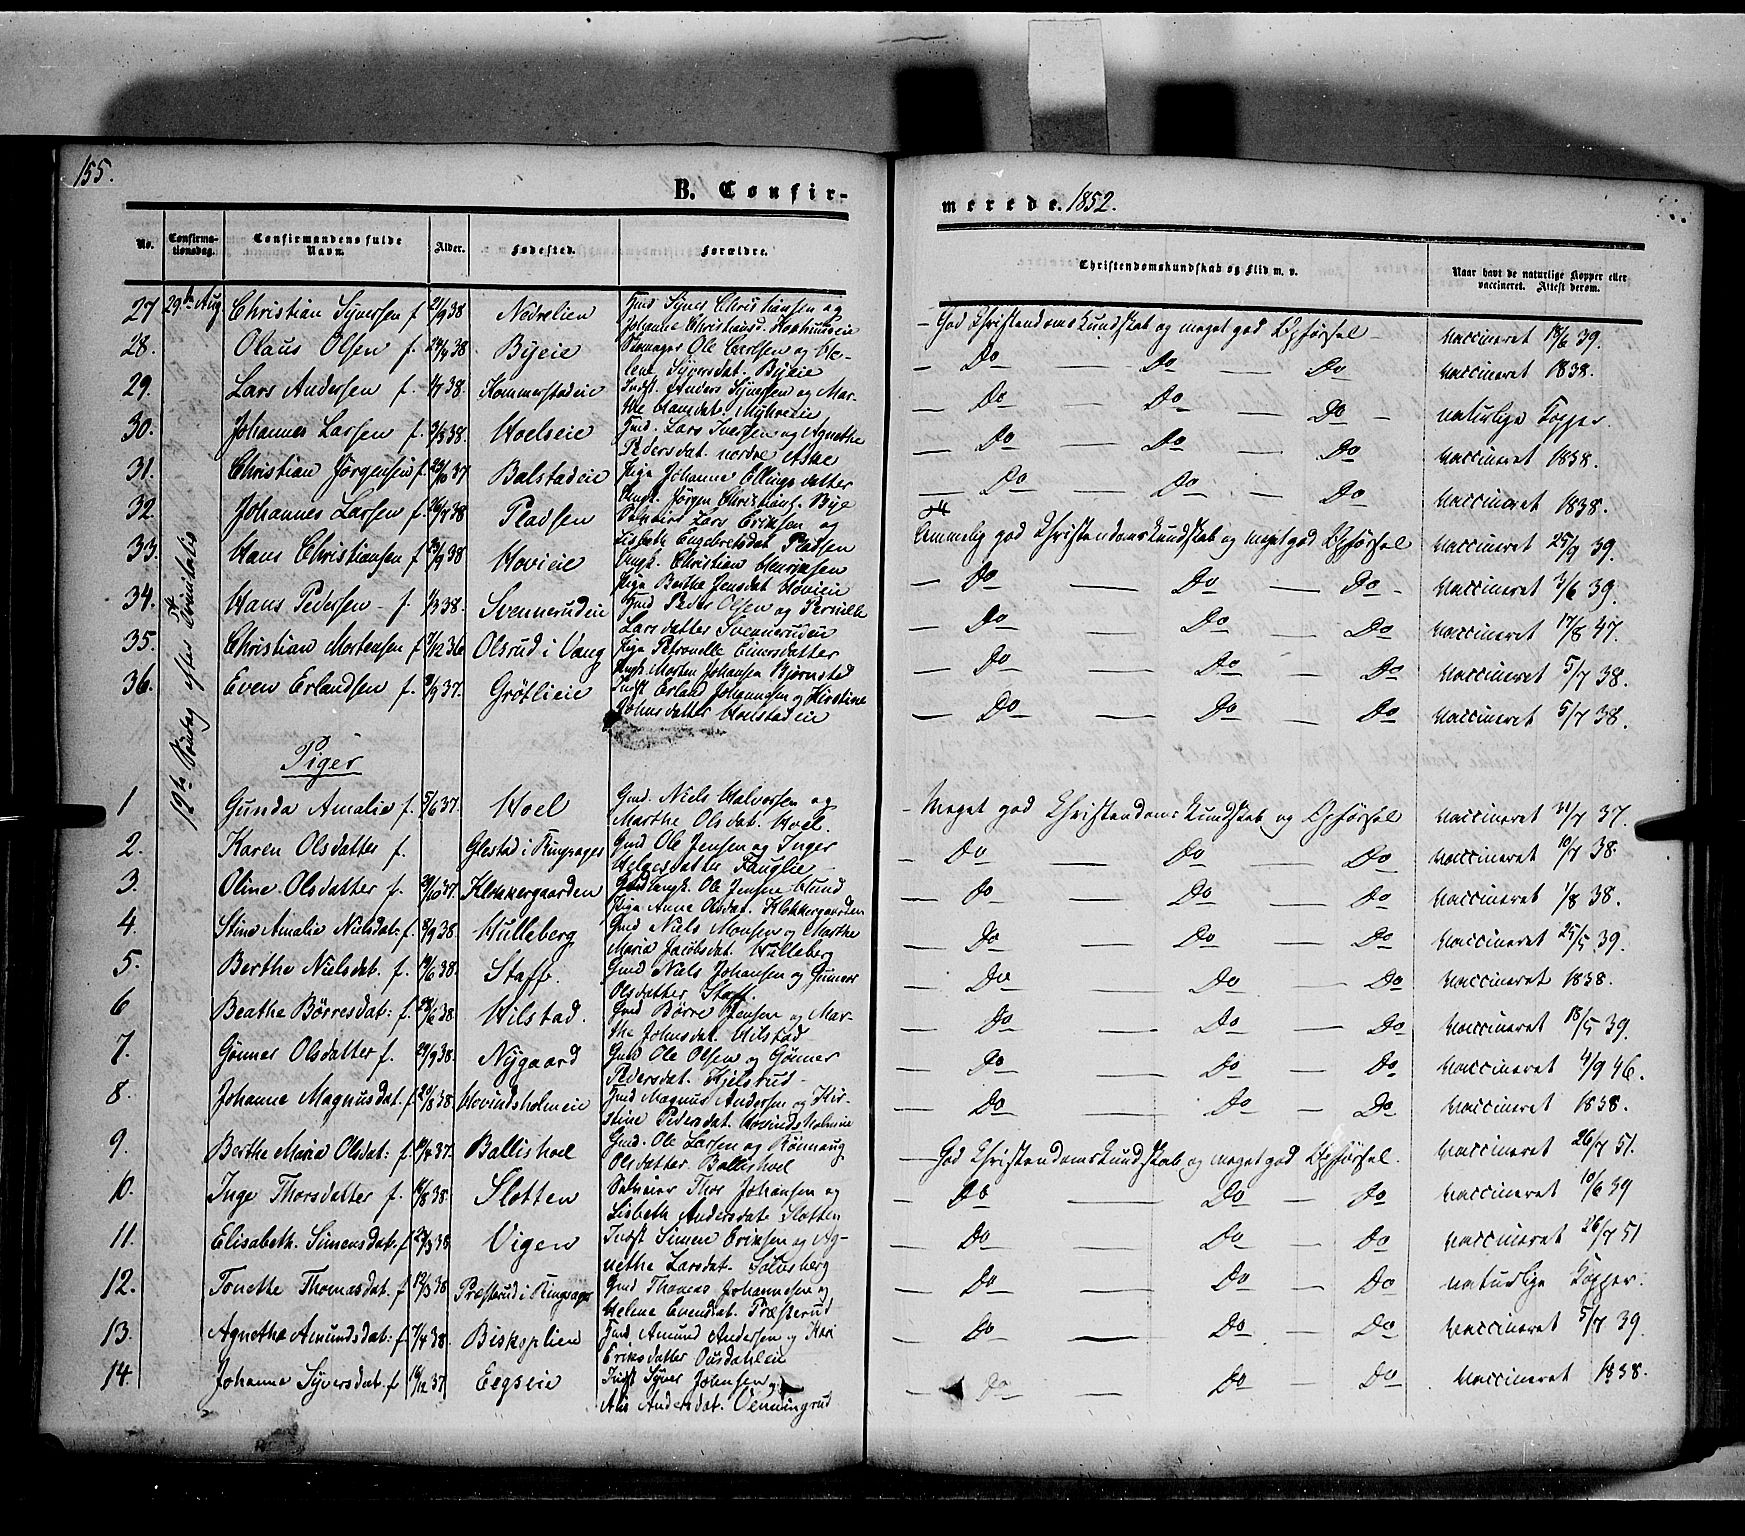 155.
B. Confir-
merede. 1852.
No.
Confirma-
tionsdag.
Confirmandens fulde
Navn.
Alder.
Fødested.
Forældre.
Christendomskundskab og Flid m. v.
Naar havt de naturlige Kopper eller
vaccineret. Attest derom.
29de Aug
12te Søndag efter Trinitatis
27 Christian Syversen f. 21/9 38 Nedrelien Gmd. Syver Christiansen og
Johanne Christiansd. — God Christendomskundskab og meget god Opførsel — vaccineret 18/6 39.
28. Olaus Olsen f. 24/4 38. Byeie Ole Carlsen og He-
lene Syversdat. Byeie — Do — Do — Do vaccineret 1838.
29. Lars Andersen f. 38. Kommerstadeie Indst. Anders Syversen og Mar-
the Hansdat. — Do — Do — Do — naturlige Kopper.
30. Johannes Larsen f. 38. Hoelseie Lars Iversen og Agnethe
Pedersdat. nordre Aske — Do — Do — Do vaccineret 1838.
31. Christian Jørgensen f. 37 Balstadeie Pige Johanne Ellingsdatter
Ungk. Jørgen Christians. Bye — Do — Do — Do vaccineret 1838.
32. Johannes Larsen f. 38 Pladsen Selveier Lars Eriksen og
Lisbeth Engebretsdat. Pladsen Temmelig god Christendomskundskab og meget god Opførsel vaccineret 25/9 39.
33. Hans Christiansen f. 38 Hovieie Ungk. Christian Henriksen
Pige Berthe Jensdat. Hovieie — Do — Do — Do — vaccineret 3/6 39.
34. Hans Pedersen — f. 38. Svennerudeie Peder Olsen og Pernille
Larsdatter Svennerudeie — Do — Do — Do vaccineret 17/8 47.
35. Christian Mortensen f. 36 Olsrud i Vang Pige Petronelle Einersdatter
Ungk. Morten Johansen Bjørnstad — Do — Do — Do vaccineret 5/7 38.
36. Even Erlandsen f. 37. Grøtlieie Indst Erland Johannesen og Kirstine
Johnsdatter — Do — Do — Do vaccineret 5/7 38.
Piger
1 Gunda Amalie f. 5/6 37. Hoel Gmd. Niels Halvorsen og
Marthe Olsdat. Hoel. — Meget god Christendomskundskab og Opførsel vaccineret 7 37.
2. Karen Olsdatter f. Glestad i Ringsager Gmd Ole Jensen og Inger
Helgesdatter Fauglie — Do — Do — Do vaccineret 10/7 38.
3. Oline Olsdatter f. 37. Klokkergaarden Ungk. Ole Jensen Hund
Pige Anne Olsdat. Klokkergaarden — Do — Do — Do vaccineret 1/8 38.
4. Stine Amalie Nielsdat. f. 8/9 38 Hulleberg Gmd Niels Monsen og Marthe
Maria Jacobsdat. Hulleberg — Do — Do — Do vaccineret 25/5 39.
5. Berthe Nielsdat. f. 38. Staff. Gmd Niels Johansen og Gunnor
Olsdatter Staff. — Do — Do — Do vaccineret 1838.
6 Beathe Børresdat: f. 38. Hilstad. Gmd Børre Jensen og Mar-
the Johnsdat. Hilstad — Do — Do — Do vaccineret 18/5 39.
7. Gønner Olsdatter f. 29/9 38. Nygaard Gmd Ole Olsen og Gønner
Pedersdat. Kjelsrud — Do — Do — Do vaccineret 4/9 46.
8. Johanne Magnusdat. f. 20/8 38 Hovindsholmeie Magnus Andersen og Kir-
stine Pedersdat. Hovindsholmeie — Do — Do — Do vaccineret 1838.
9. Berthe Maria Olsdat: f. 37. Ballishoel Gmd. Ole Larsen og Rønnaug
Olsdatter Ballishoel — God Christendomskundskab og meget god Opførsel. vaccineret 26/7 51.
10. Inge Thorsdatter f. 38. Slotten Selveier Thor Johansen og
Lisbeth Andersdat. Slotten — Do — Do — Do vaccineret 10/6 39
11. Elisabeth Simensdat. f. 38 Vigen Indst Simen Eriksen og Ag-
nethe Larsdat. Solusberg — Do — Do — Do vaccineret 26/7 51
12. Tonette Thomasdat. f. 12/3 38 Præsterud i Ringsager Gmd Thomas Johannesen og
Helene Evensdat. Præsterud — Do — Do — Do naturlige Kopper.
13. Agnethe Amundsdat: f. 7/4 38. Biskoplien Amund Andersen og Kari
Eriksdatter — Do — Do — Do vaccineret 5/7 39.
14. Johanne Syversdat. f. 37 Eegseie Indst Syver Johnsen og
Andersdat. Venningrud — Do — Do — Do vaccineret 1838.